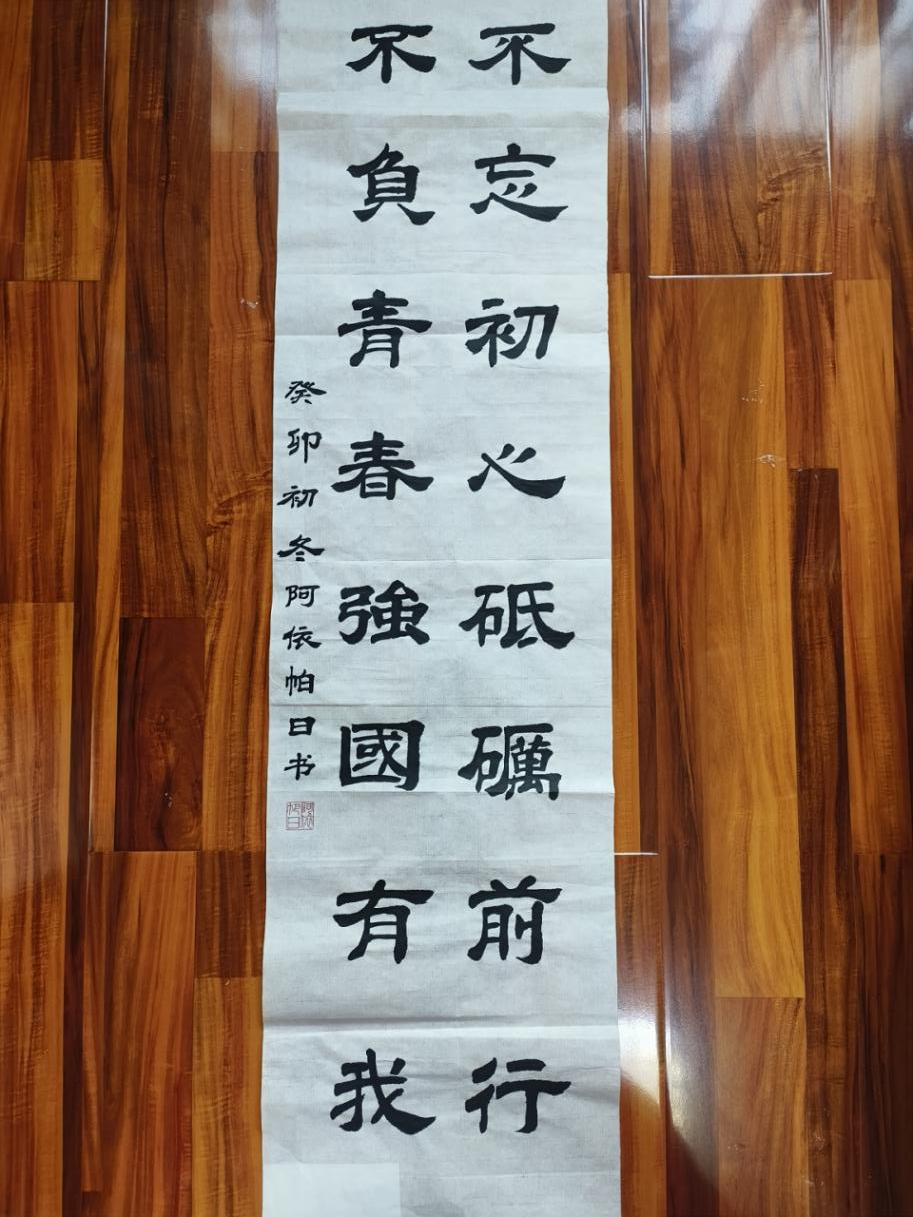 不忘初心砥礪前行
不負青春強國有我
癸卯初冬阿依帕日书